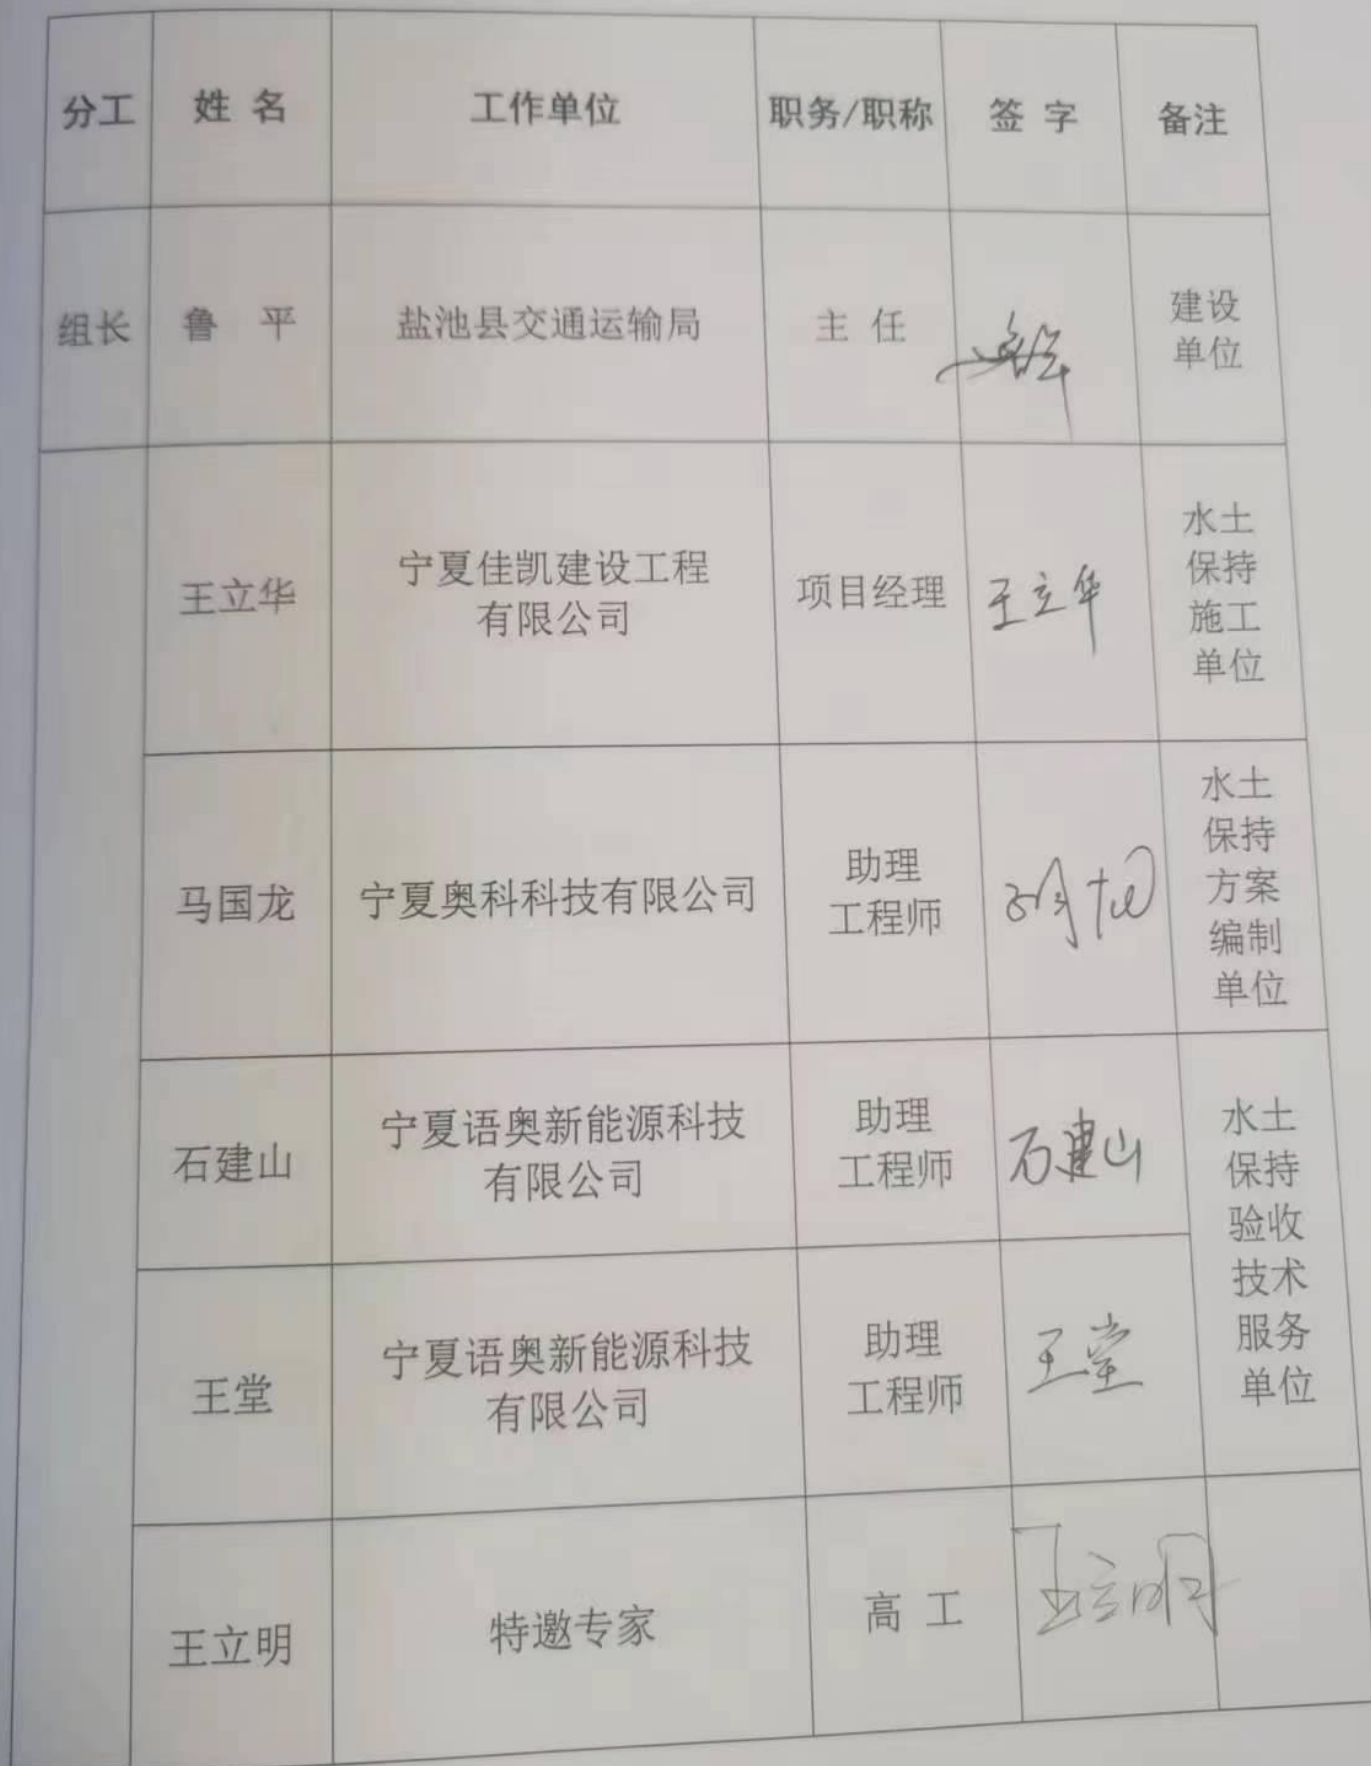 分工 姓 名 工作单位 职务/职称 签 字 备注
组长 鲁 平 盐池县交通运输局 主 任
建设
单位
王立华
宁夏佳凯建设工程
有限公司
项目经理 王立华
水土
保持
施工
单位
马国龙 宁夏奥科科技有限公司
助理
工程师
水土
保持
方案
编制
单位
石建山
宁夏语奥新能源科技
有限公司
助理
工程师
石建山
水土
保持
验收
技术
服务
单位
王堂
宁夏语奥新能源科技
有限公司
助理
工程师
王堂
王立明 特邀专家 高 工 王立明